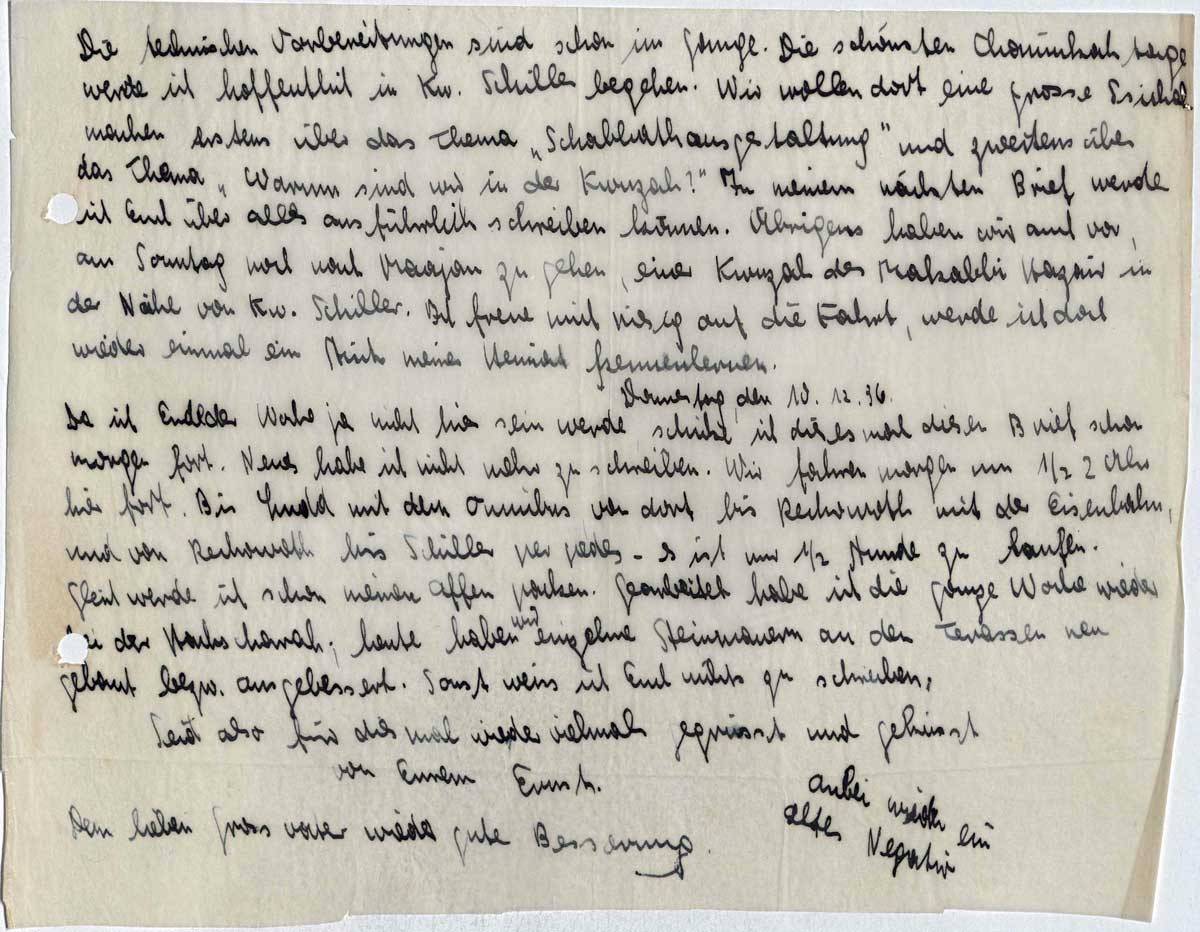 Die technischen Vorbereitungen sind schon im Gange. Die schönsten Chanukkah tage
werde ich hoffentlich in Kw. Schiller begehen. Wir wollen dort eine grosse Ssichah
machen erstens über das Thema „Schabbathausgestaltung" und zweitens über
das Thema „Warum sind wir in der Kwuzah?" In meinem nächsten Brief werde
ich Euch über alles ausführlich schreiben können. Übrigens haben wir auch vor,
am Sonntag noch nach Maajan zu gehen, einer Kwuzah des Makabbi Hazair in
der Nähe von Kw. Schiller. Ich freue mich riesig auf die Fahrt, werde ich doch
wieder einmal ein Stück meiner Heimat kennenlernen.
Donnerstag, den 10. 12. 36.
Da ich Ende der Woche ja nicht hier sein werde, schicke ich diesmal diesen Brief schon
morgen fort. Neues habe ich nicht mehr zu schreiben. Wir fahren morgen um 1/2 2 Uhr
hier fort. Bis Ludd mit dem Omnibus von dort bis Rechowoth mit der Eisenbahn,
und von Rechowoth bis Schiller per pedes – es ist nur 1/2 Stunde zu laufen.
Gleich werde ich schon meinen Affen packen. Gearbeitet habe ich die ganze Woche wieder
bei der Hachscharah; heute haben wir einzelne Steinmauern an den Terassen neu
gebaut bezw. ausgebessert. Sonst weiss ich Euch nichts zu schreiben.
Seid also für das mal wieder vielmals gegrüsst und geküsst
von Eurem Ernst.
Dem lieben Grossvater wieder gute Besserung.
Anbei wieder ein
altes Negativ